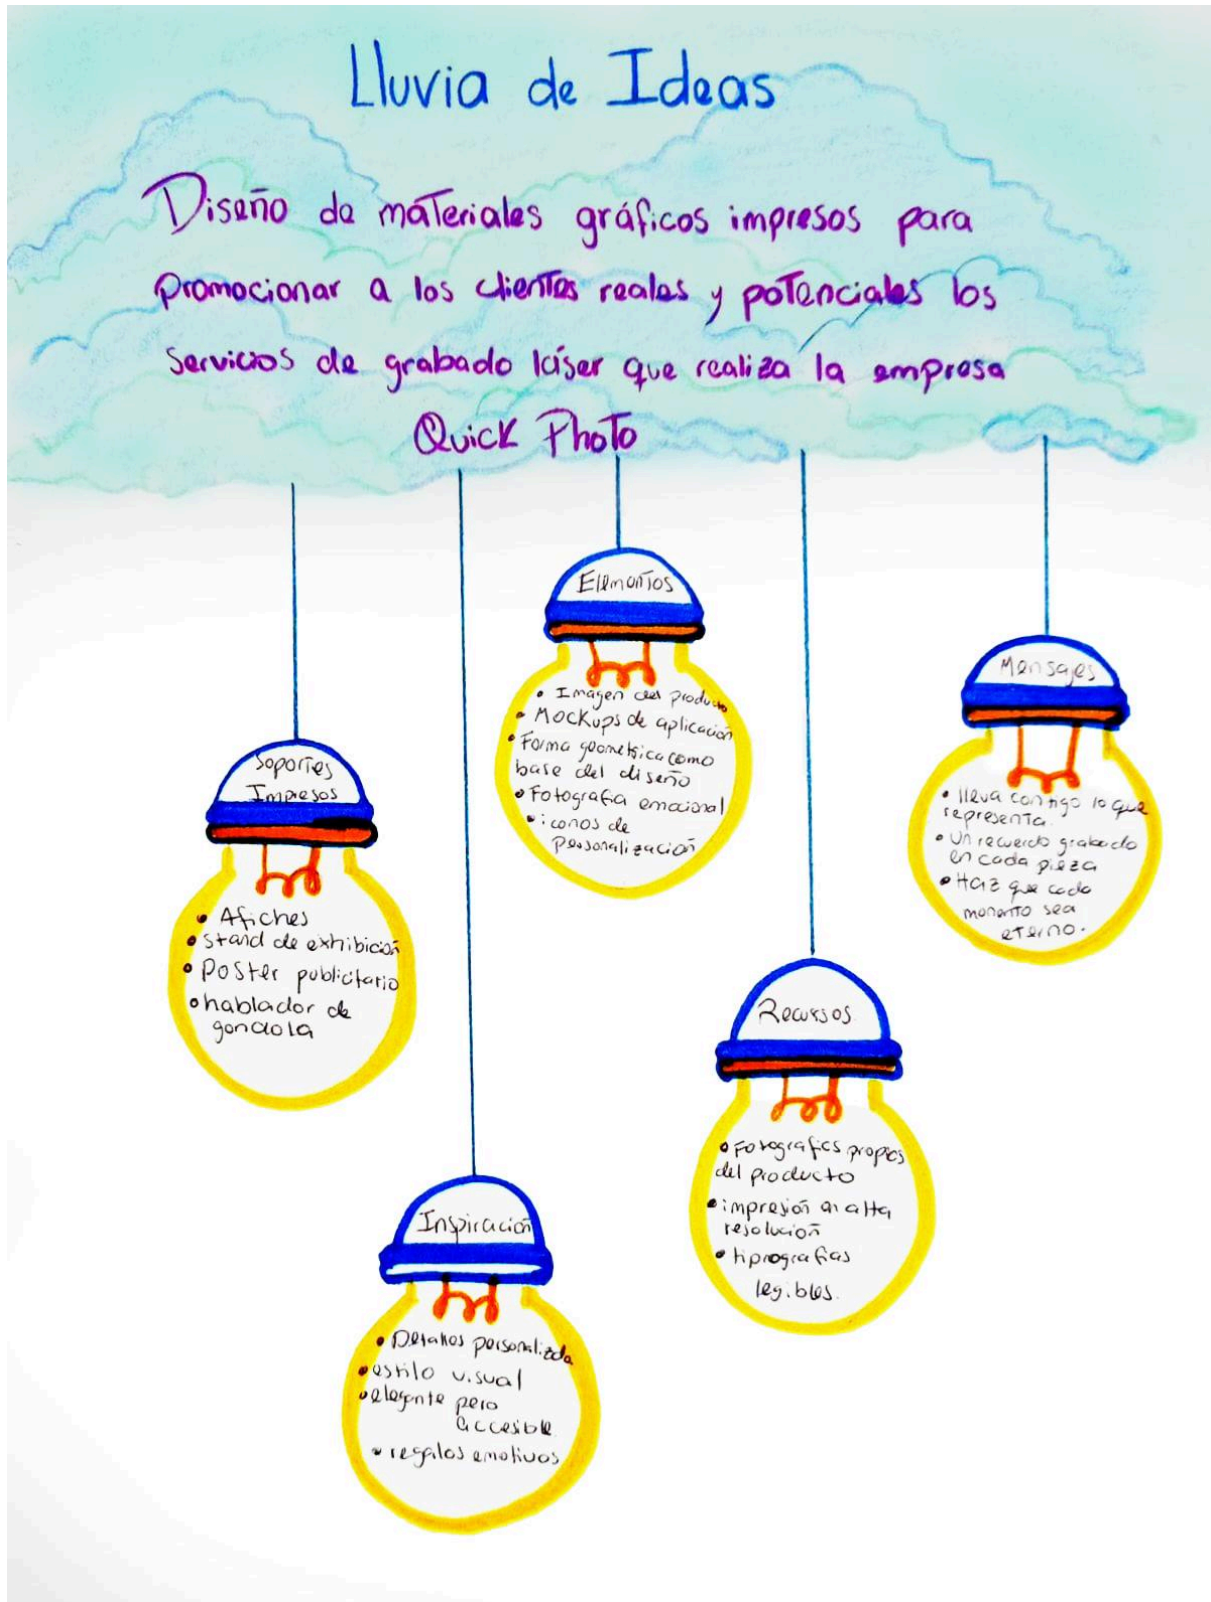 Lluvia de Ideas
Diseño de materiales gráficos impresos para
promocionar a los clientes reales y potenciales los
servicios de grabado láser que realiza la empresa
Quick Photo
Soportes
Impresos
• Afiches
• stand de exhibición
• poster publicitario
• hablador de
gondola
Inspiración
• Detalles personalizda
• estilo visual
• elegante pero
accesible
• regalos emotivos
Elementos
• Imagen del producto
• Mockups de aplicación
• Forma geometrica como
base del diseño
• Fotografia emocional
• iconos de
personalización
Recursos
• Fotografias propias
del producto
• impresión en alta
resolución
• tiprografias
legibles.
Mensajes
• lleva contigo lo que
representa.
• Un recuerdo grabado
en cada pieza
• Haz que cada
momento sea
eterno.